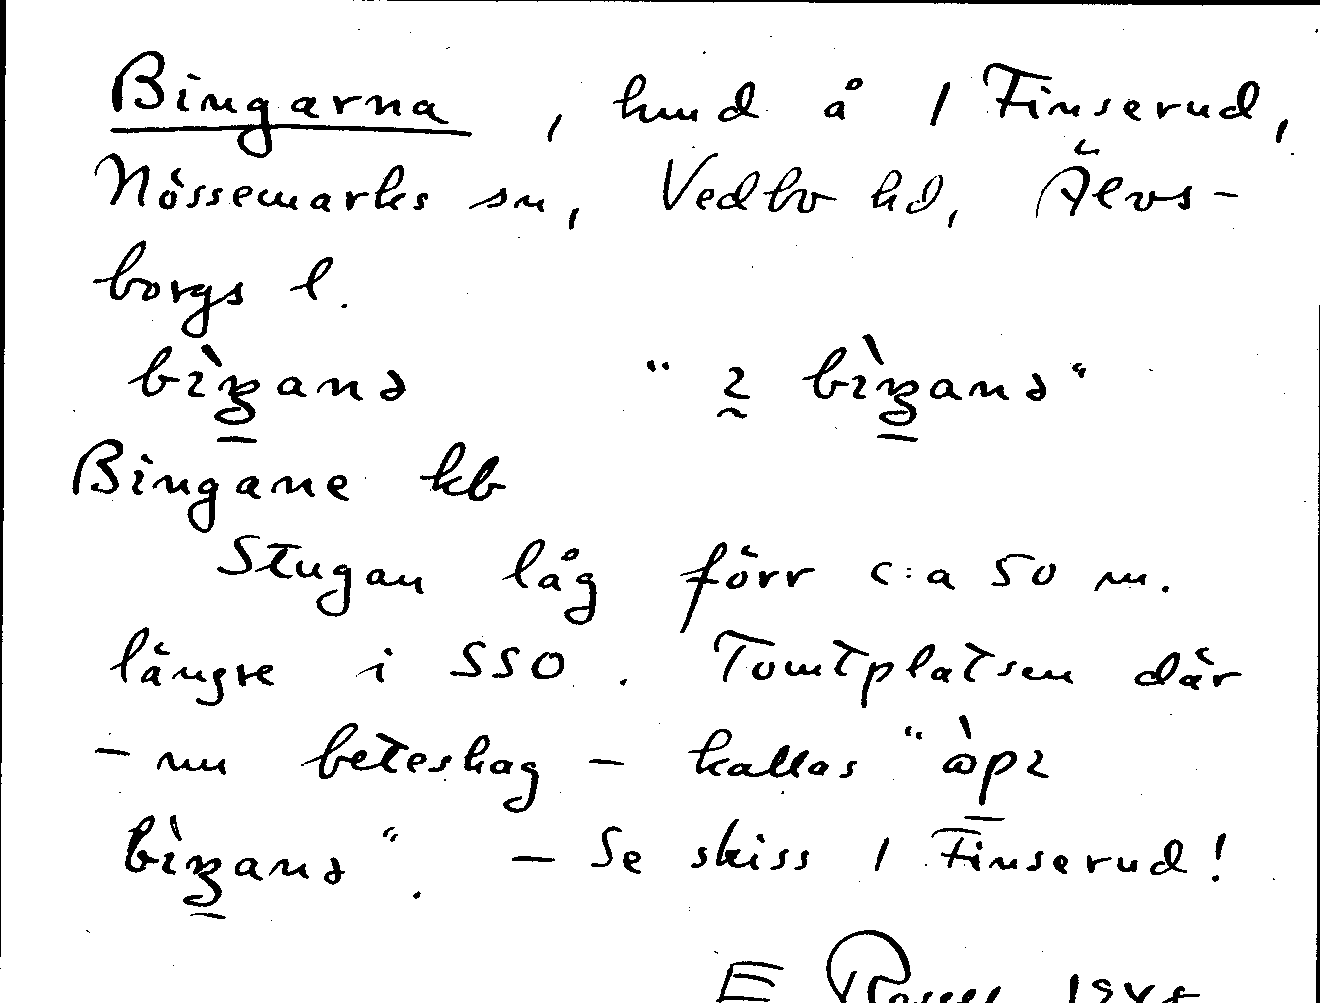 Bingarna, hmd å 1 Finserud,
Nössemarks sn, Vedbo hd, Älvs-
borgs l.
Bingane kb
Stugan låg förr c:a 50 m.
längre i SSO. Tomtplatsen där
- nu beteshag - kallas
- Se skiss 1 Finserud!
E